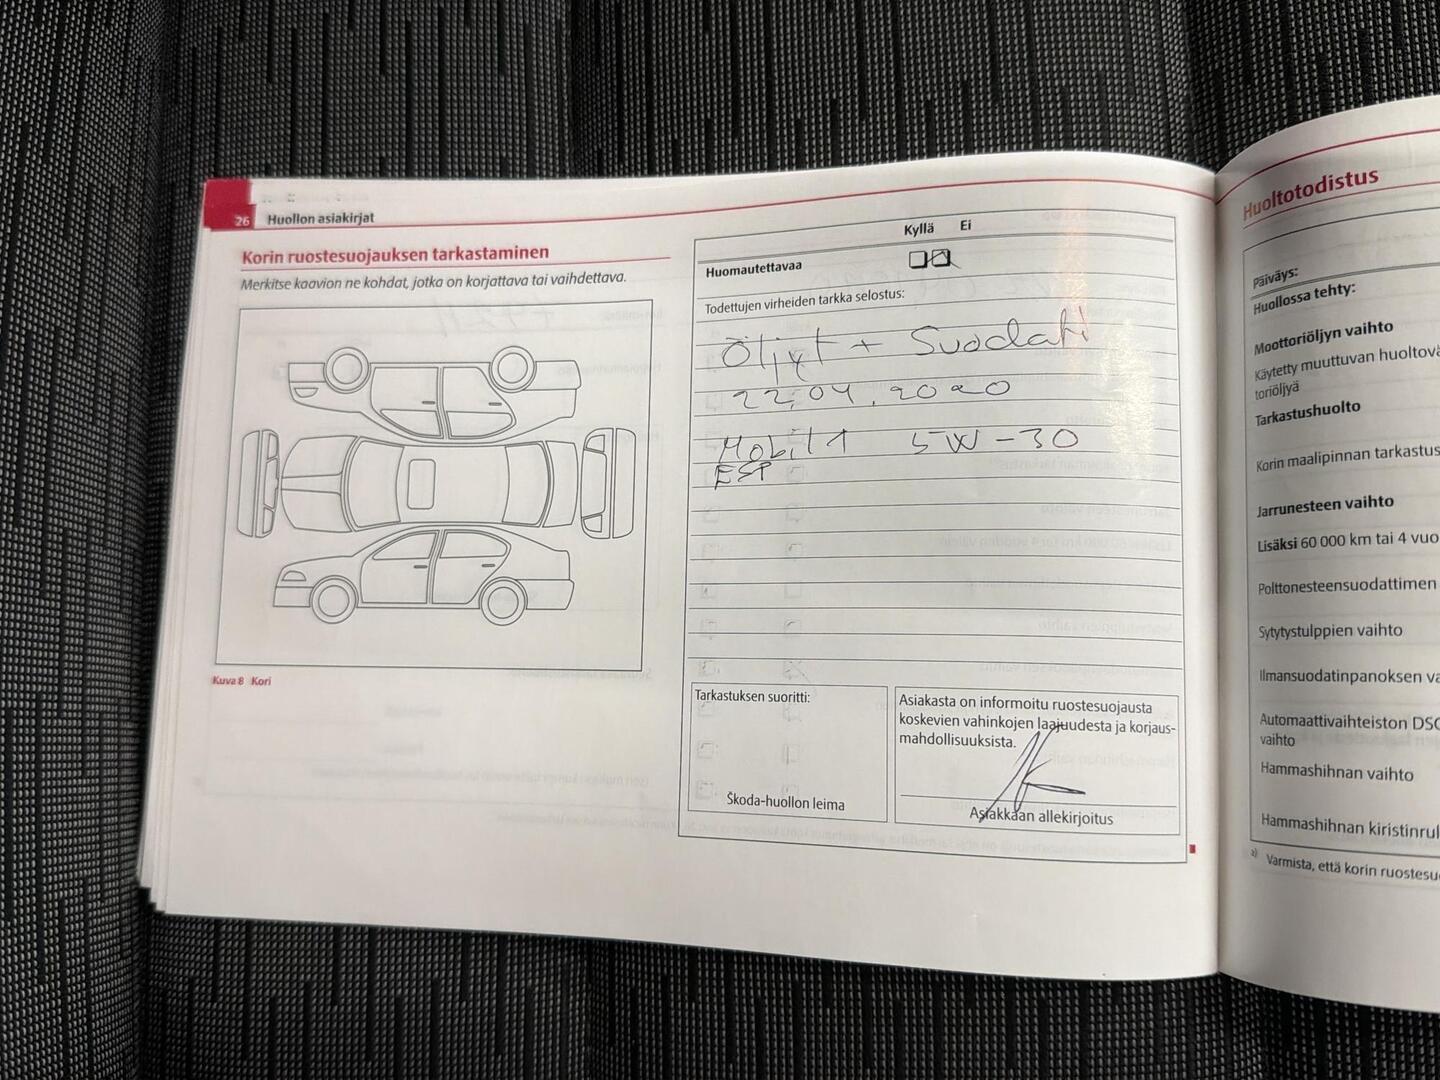 26 Huollon asiakirjat
Korin ruostesuojauksen tarkastaminen
Merkitse kaavion ne kohdat, jotka on korjattava tai vaihdettava.
Kuva 8 Kori
Kyllä Ei
Huomautettavaa
Todettujen virheiden tarkka selostus:
Öljyt + Suodati
22.04.2020
Mobil 1 5W-30
ESP
Tarkastuksen suoritti:
Škoda-huollon leima
Asiakasta on informoitu ruostesuojausta
koskevien vahinkojen laajuudesta ja korjaus-
mahdollisuuksista.
Asiakkaan allekirjoitus
Huoltotodistus
Päiväys:
Huollossa tehty:
Moottoriöljyn vaihto
Käytetty muuttuvan huoltovä
toriöljyä
Tarkastushuolto
Korin maalipinnan tarkastus
Jarrunesteen vaihto
Lisäksi 60 000 km tai 4 vuo
Polttonesteensuodattimen
Sytytystulppien vaihto
Ilmansuodatinpanoksen va
Automaattivaihteiston DSG
vaihto
Hammashihnan vaihto
Hammashihnan kiristinrul
a) Varmista, että korin ruostesu